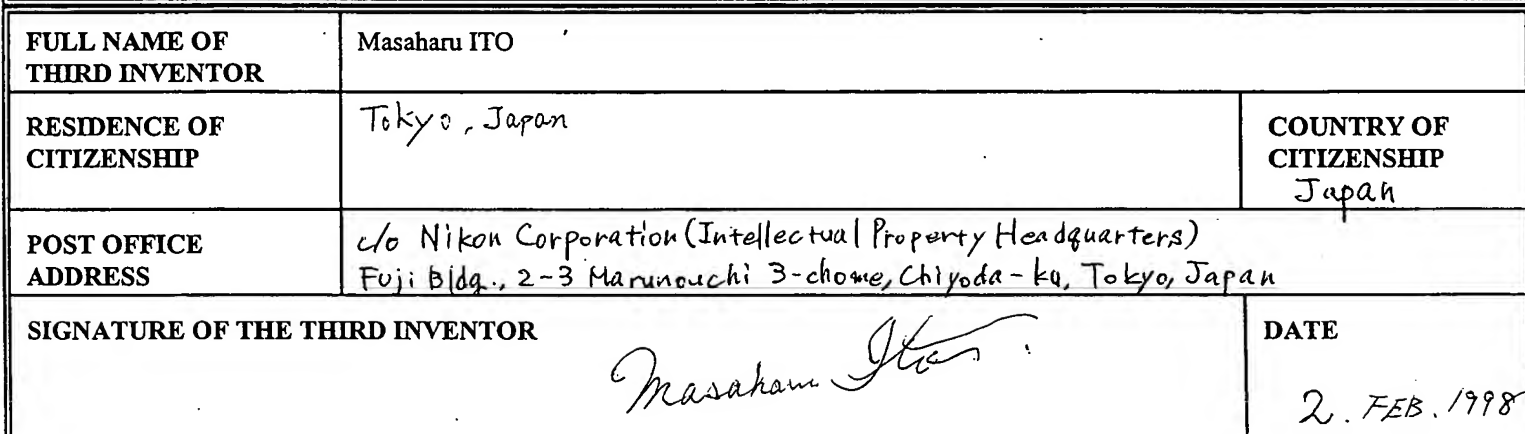 FULL NAME OF THIRD INVENTOR
Masaharu ITO
RESIDENCE OF CITIZENSHIP
Tokyo, Japan
COUNTRY OF CITIZENSHIP
Japan
POST OFFICE ADDRESS
c/o Nikon Corporation (Intellectual Property Headquarters)
Fuji Bldg., 2-3 Marunouchi 3-chome, Chiyoda-ku, Tokyo, Japan
SIGNATURE OF THE THIRD INVENTOR
Masaharu Ito.
DATE
2. FEB. 1998